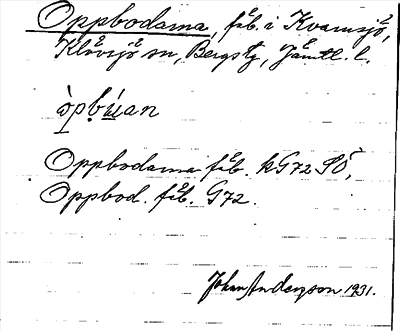 Oppbodarna, fäb. i Kvarnsjö,
Klövsjö sn, Bergs tg, Jämtl. l.
òpbúan
Oppbodarna fäb. kG72 SÖ,
Oppbod. fäb. G72.
Johan Anderzon 1931.